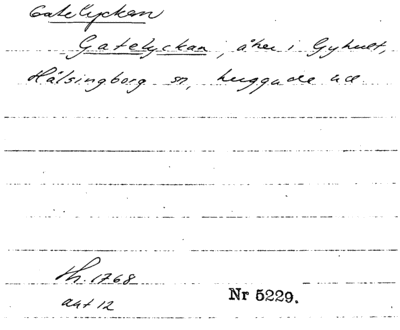 Gatelyckan
Gatelyckan, åker i Gyhult,
Hälsingborg sn, huggade
Th. 1768
akt 12
Nr 5229.